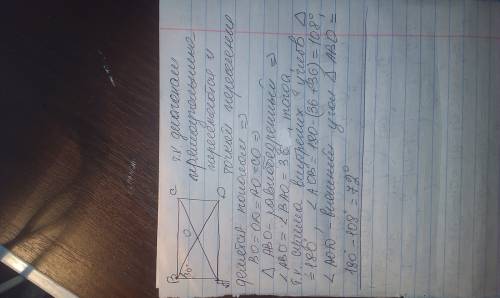 B
C
O
A
D
т.к диагонали
прямоугольника
пересекаются и
точкой пересечения
делятся пополам =>
BO=OD=AO=CO =>
△ ABO-равнобедренный =>
∠ABO=∠BAO=36°, тогда,
т.к сумма внутренних углов △
=180°, ∠AOB=180-(36+36)=108°,
∠AOD-внешний угол △ ABO=
180°-108°=72°